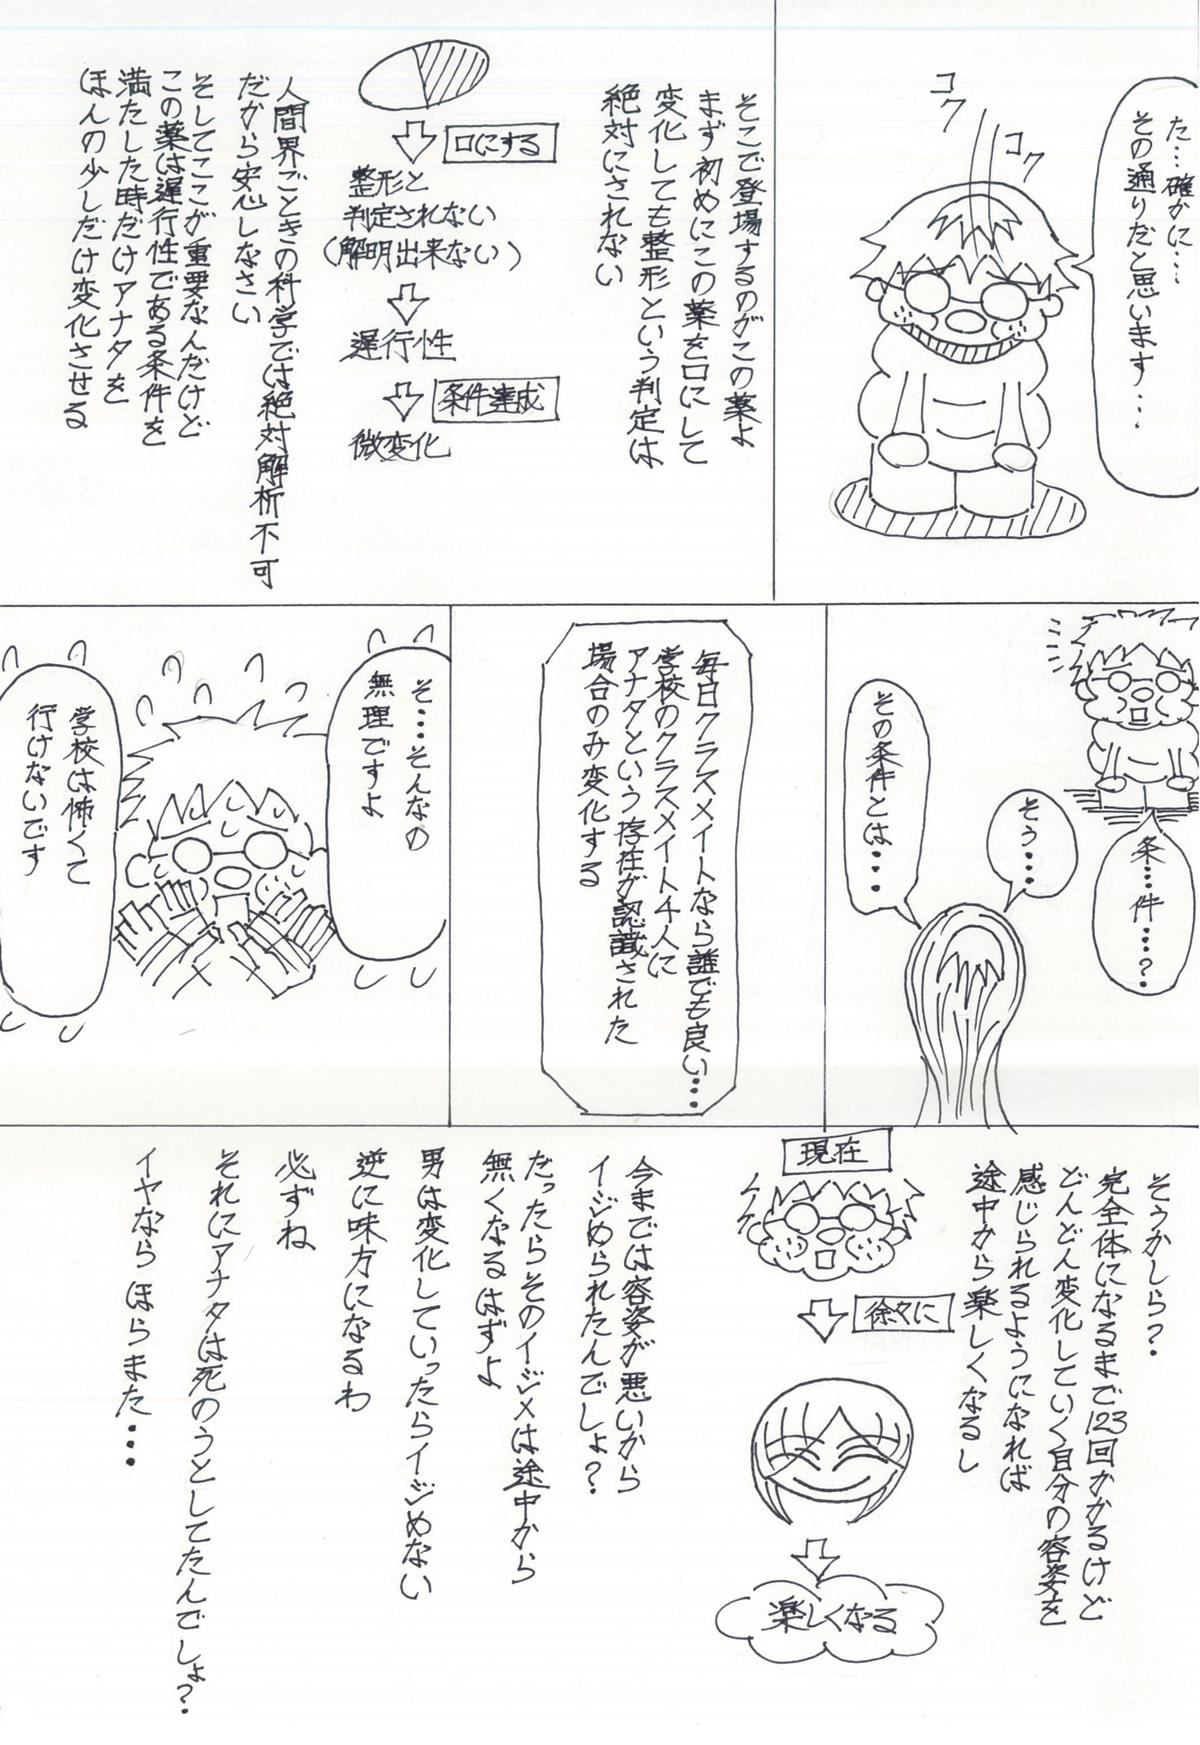 た…確かに…
その通りだと思います…
コク
コク
そこで登場するのがこの薬よ
まず初めにこの薬を口にして
変化しても整形という判定は
絶対にされない
口にする
整形と
判定されない
(解明出来ない)
遅行性
条件達成
微変化
人間界ごときの科学では絶対解析不可
だから安心しなさい
そしてここが重要なんだけど
この薬は遅行性である条件を
満たした時だけアナタを
ほんの少しだけ変化させる
条…件…?
そう…
その条件とは…
毎日クラスメイトなら誰でも良い…
学校のクラスメイト4人に
アナタという存在が認識された
場合のみ変化する
そ…そんなの
無理ですよ
学校は怖くて
行けないです
そうかしら?
完全体になるまで123回かかるけど
どんどん変化していく自分の容姿を
感じられるようになれば
途中から楽しくなるし
現在
徐々に
楽しくなる
今までは容姿が悪いから
イジめられたんでしょ?
だったらそのイジメは途中から
無くなるはずよ
男は変化していったらイジめない
逆に味方になるわ
必ずね
それにアナタは死のうとしてたんでしょ?
イヤならほらまた…